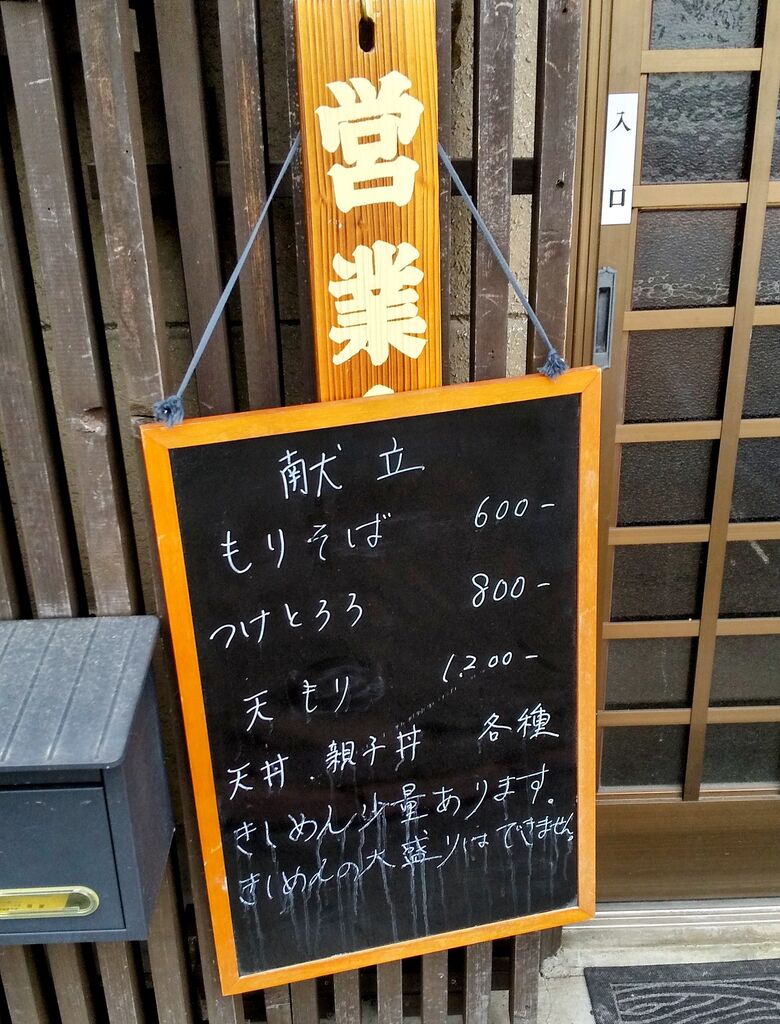 営業
入口
献立
もりそば 600-
つけとろろ 800-
天もり 1.200-
天丼.親子丼 各種
きしめん少量あります。
きしめんの大盛りはできません。